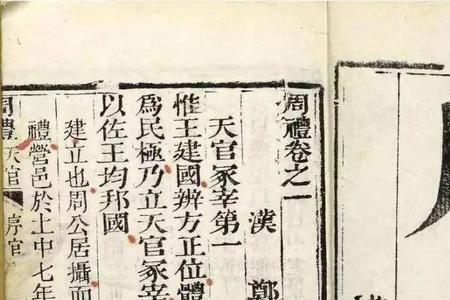 周禮卷之一
漢 鄭
天官冢宰第一
惟王建國辨方正位體
爲民極乃立天官冢宰
以佐王均邦國
建立也周公居攝而
禮營邑於土中七年
周禮 天官 序官